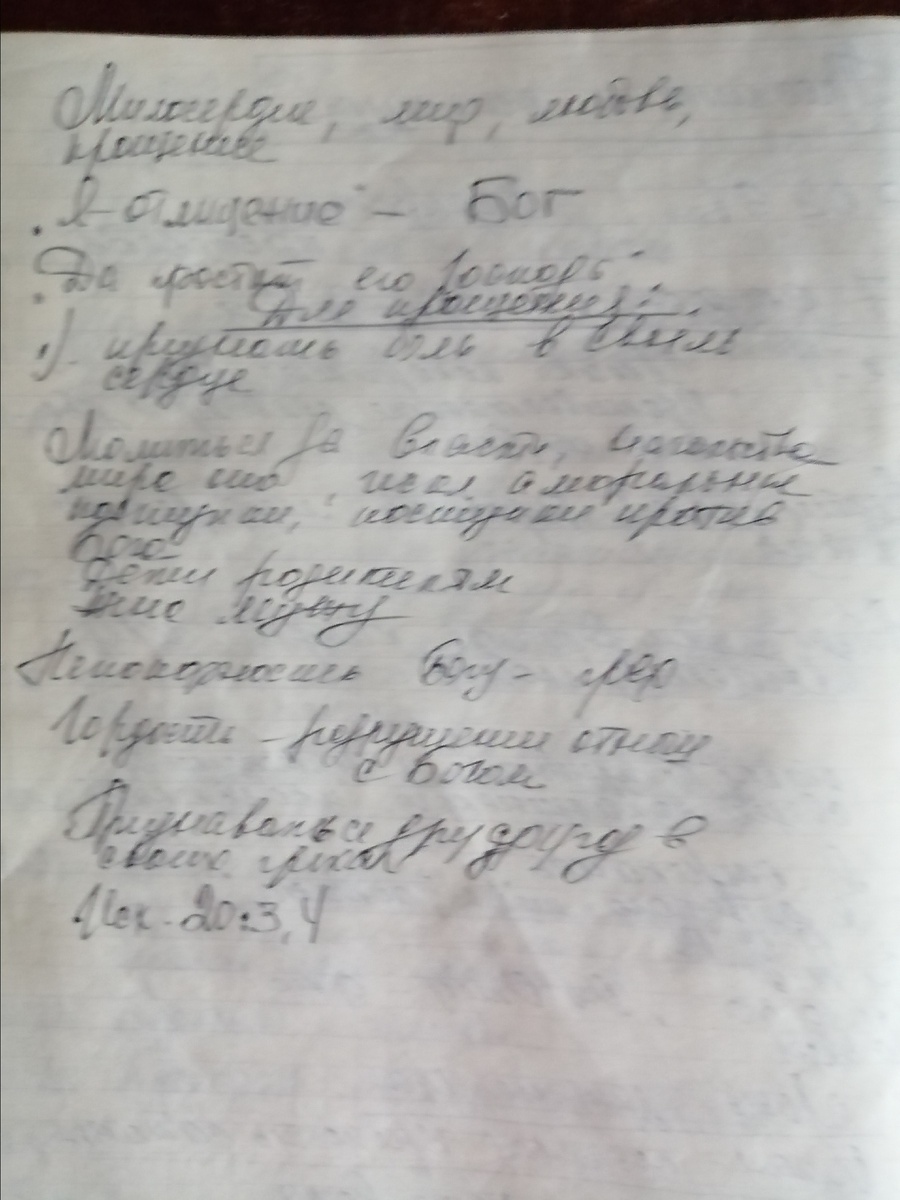 Милосердие, мир, любовь,
прощение
"Я отмщение" - Бог
Да простит его Господь"
Для прощения:
1) признать боль в своём
сердце
Молиться за власти,
мира сего, аморальные
поступки против
Бога
Дети родителям
мужу
Непокорность Богу - грех
Гордость - разрушение отнош
с Богом
Признаваться друг другу в
своих грехах
Исх. 20:3,4